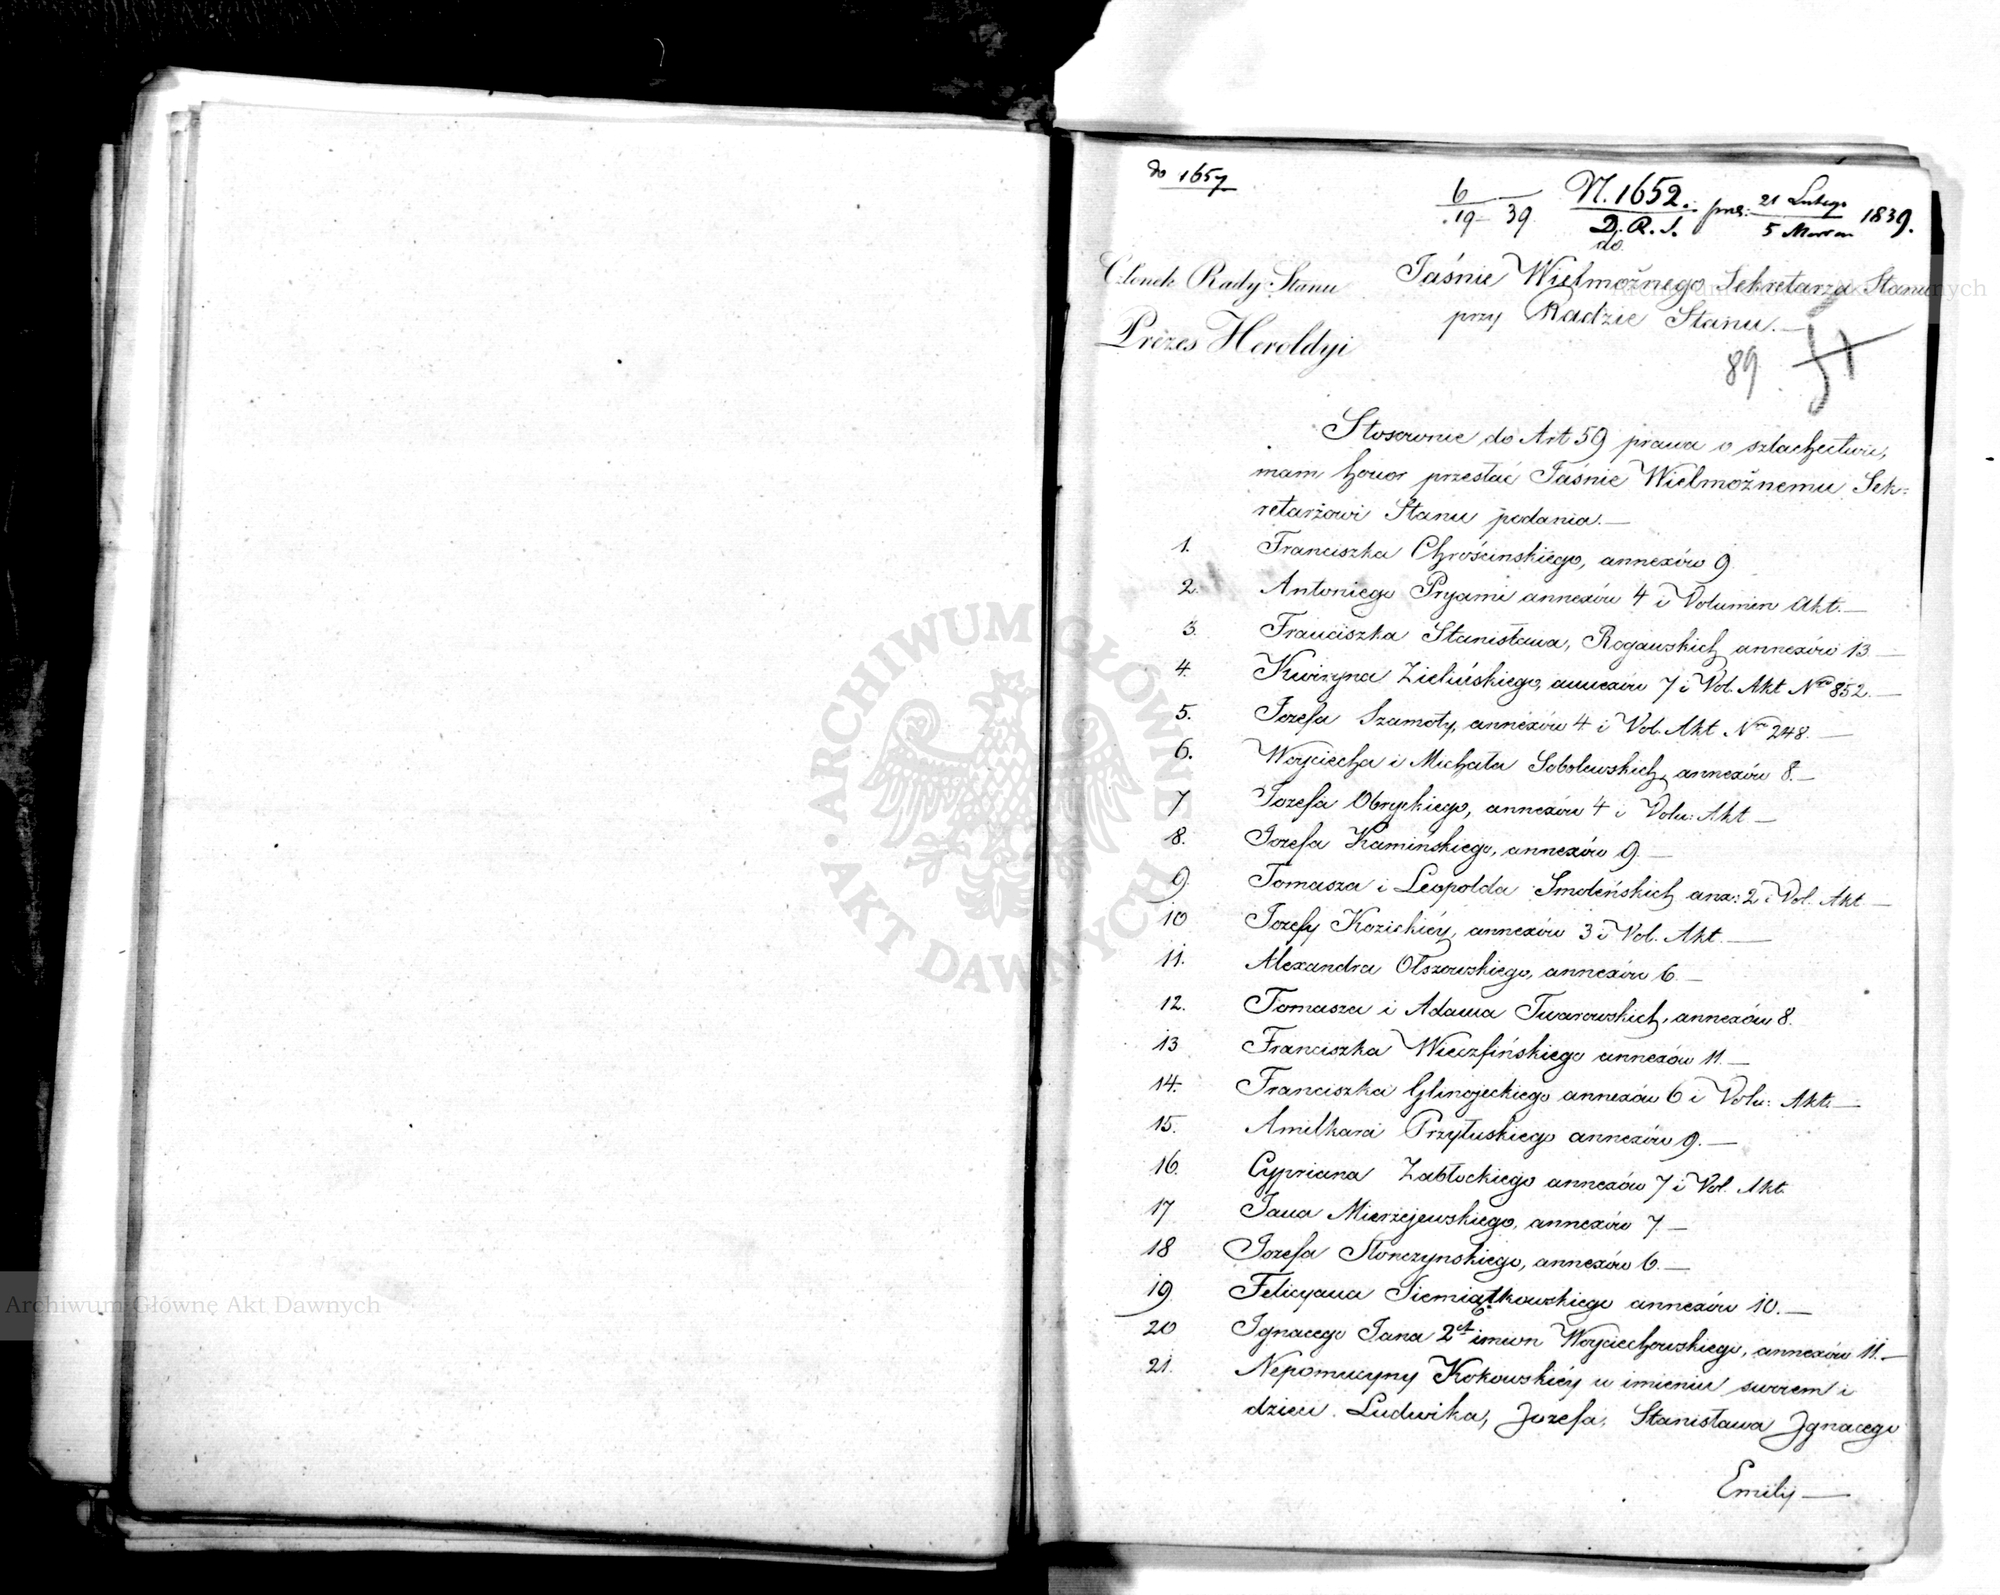 do 1657
6
19 39
N. 1652.
D. R. S.
prez: 21 Lutego
5 Marca 1839.
do
Członek Rady Stanu
Prezes Heroldyi
Jaśnie Wielmożnego Sekretarza Stanu
przy Radzie Stanu.—
89
Stosownie do Art 59 prawa o szlachectwie,
mam honor przesłać Jaśnie Wielmożnemu Sek-
retarzowi Stanu podania.—
1. Franciszka Chrościnskiego, annexów 9
2. Antoniego Pryami annexów 4 i Volumen Akt.—
3. Franciszka Stanisława, Rogawskich annexów 13—
4. Kwiryna Zielińskiego, annexów 7 i Vol. Akt Nro 852.—
5. Jozefa Szamoty, annexów 4 i Vol. Akt Nro 248.—
6. Woyciecha i Michała Sobolewskich, annexów 8.—
7 Jozefa Obryckiego, annexów 4 i Volu: Akt—
8. Jozefa Kamińskiego, annexów 9—
9 Tomasza i Leopolda Smoleńskich anx: 2 i Vol. Akt—
10 Jozefy Kozickiéy, annexów 3 i Vol. Akt.—
11. Alexandra Olszowskiego, annexów 6.—
12. Tomasza i Adama Twarowskich, annexów 8.
13 Franciszka Wieczfińskiego annexów 11.—
14. Franciszka Glinojeckiego annexów 6 i Volu: Akt.—
15. Amilkara Przyłuskiego annexów 9.—
16. Cypriana Zabłockiego annexów 7 i Vol. Akt
17 Jana Mierzejewskiego, annexów 7.—
18 Jozefa Słonczynskiego, annexów 6.—
19 Felicyana Siemiątkowskiego annexów 10.—
20 Ignacego Jana 2ch imion Woyciechowskiego, annexów 11.—
21. Nepomucyny Kokowskiéy w imieniu swoiem i
dzieci Ludwika, Jozefa, Stanisława Ignacego
Emily—
ARCHIWUM GŁÓWNE AKT DAWNYCH
Archiwum Główne Akt Dawnych